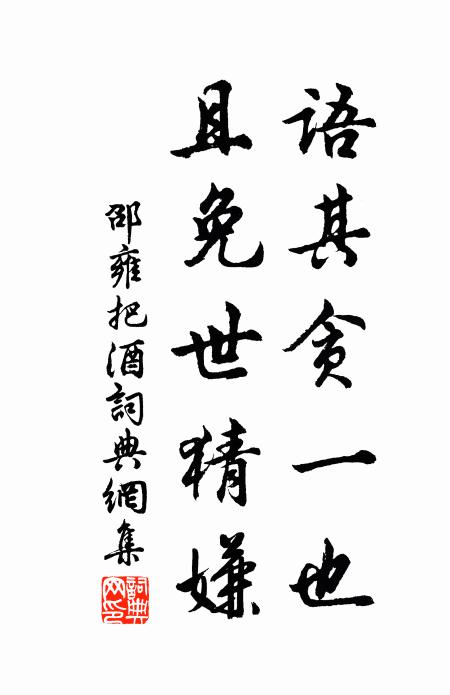 語其貪一也
且免世猜嫌
邵雍把酒詞典網集
詞典
网印